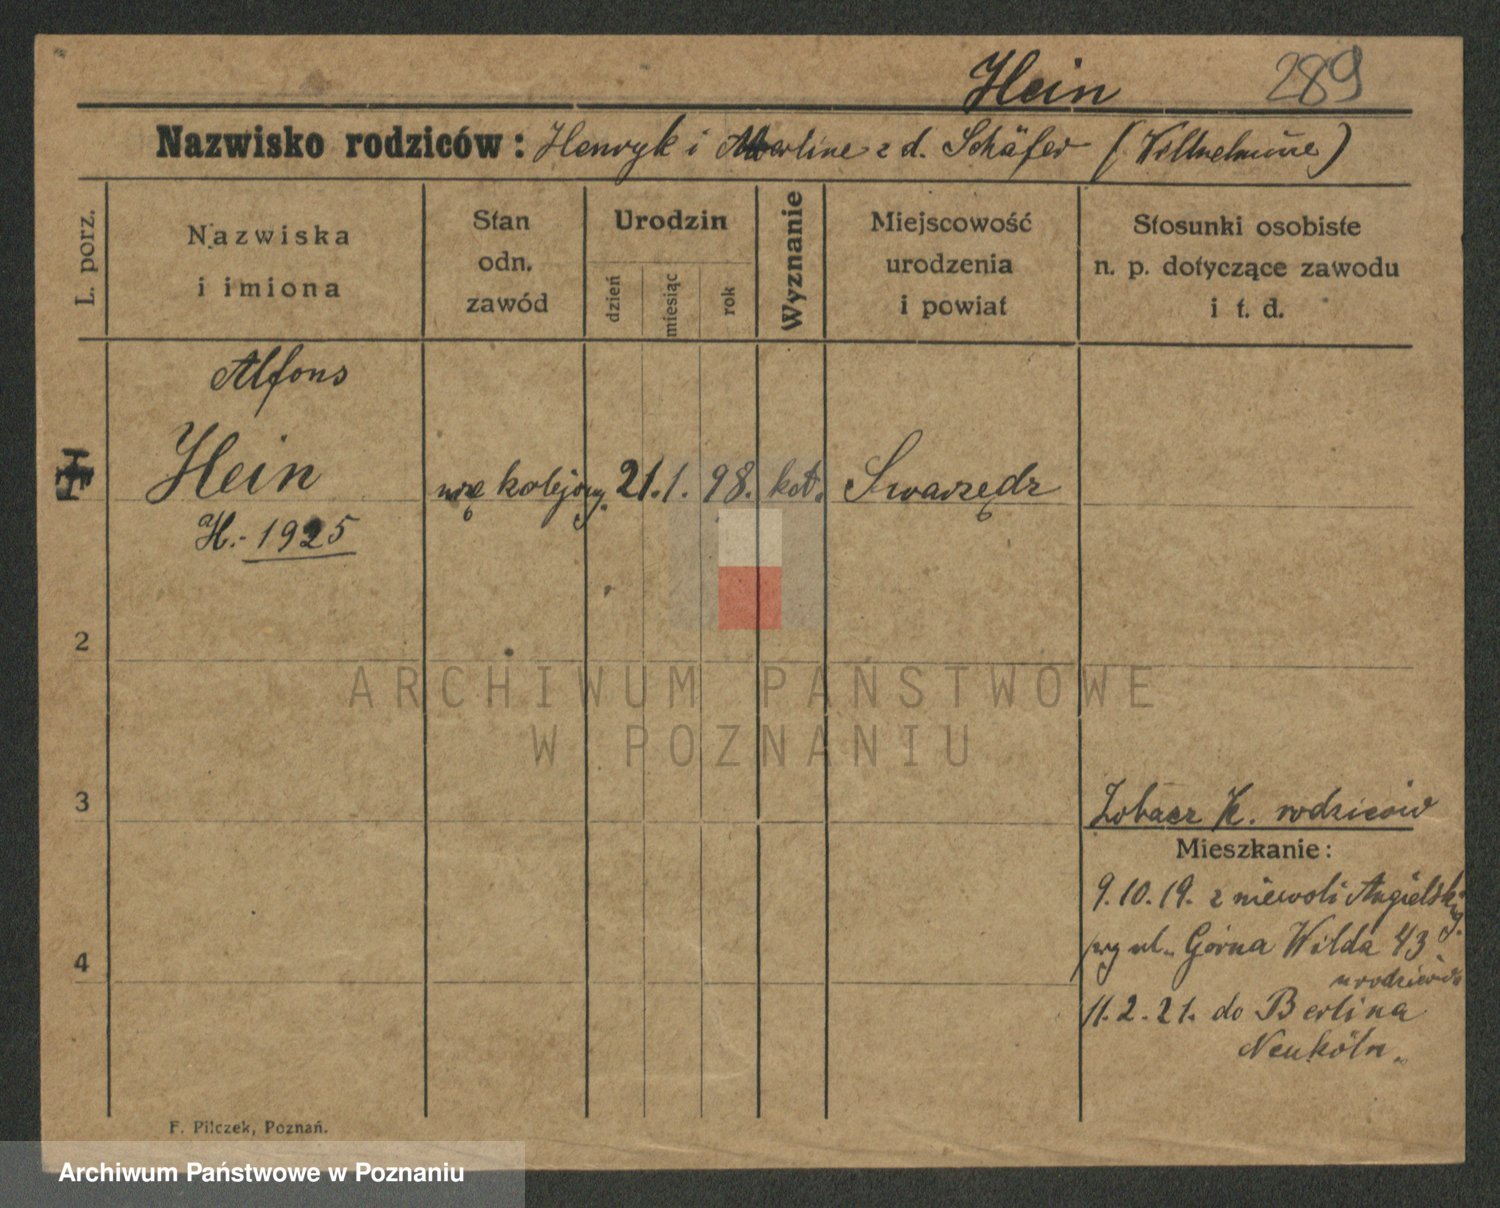 Hein 289
Nazwisko rodziców: Henryk i z d. Schäfer (Wilhelmine)
L. porz.
Nazwiska
i imiona
Stan
odn.
zawód
Urodzin
dzień
miesiąc
rok
Wyznanie
Miejscowość
urodzenia
i powiat
Stosunki osobiste
n. p. dotyczące zawodu
i t. d.
Alfons
Hein kolejowy. 21. 1. 98. kat. Swarzędz
H.- 1925
2
ARCHIWUM PAŃSTWOWE
W POZNANIU
3
Zobacz K. rodziców
Mieszkanie:
9.10.19. z niewoli Angielskiej.
ul. Górna Wilda 43
u rodziców
4
11.2.21. do Berlina
Neuköln.
F. Pilczek, Poznań.
Archiwum Państwowe w Poznaniu